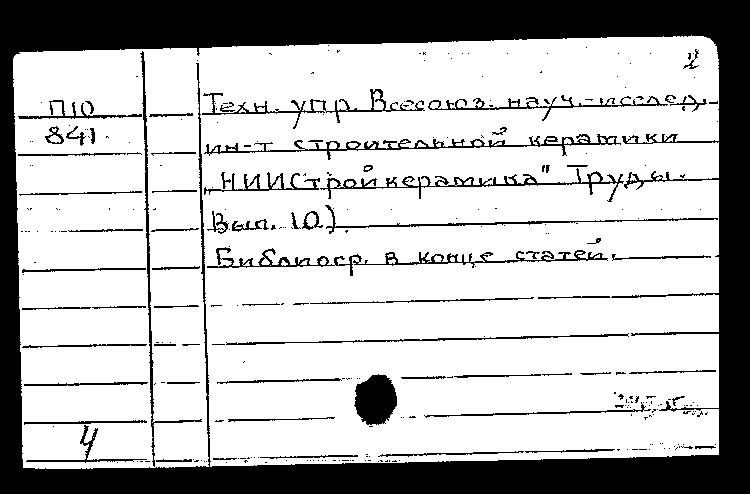 2
П10
841
Техн. упр. Всесоюз. науч.-исслед.
ин-т строительной керамики
„НИИСтройкерамика" Труды.
Вып. 10.)
Библиогр. в конце статей.
4